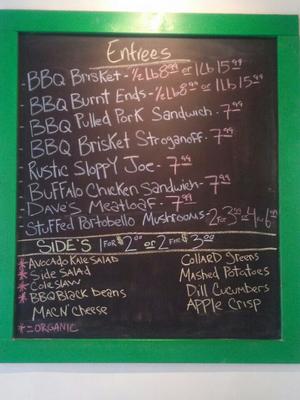 Entrees
- BBQ Brisket - ½ Lb 8.99 or 1Lb 15.99
- BBQ Burnt Ends - ½ Lb 8.99 or 1Lb 15.99
- BBQ Pulled Pork Sandwich - 7.99
- BBQ Brisket Stroganoff - 7.99
- Rustic Sloppy Joe - 7.99
- Buffalo Chicken Sandwich - 7.99
- Dave's Meatloaf - 7.99
- Stuffed Portobello Mushrooms - 2 for 3.99 or 4 for 6.99
SIDE'S 1 FOR $2.00 or 2 FOR $3.00
* Avocado Kale Salad
* Side Salad
* Coleslaw
* BBQ Black beans
Mac N' Cheese
* = ORGANIC
Collard Greens
Mashed Potatoes
Dill Cucumbers
Apple Crisp